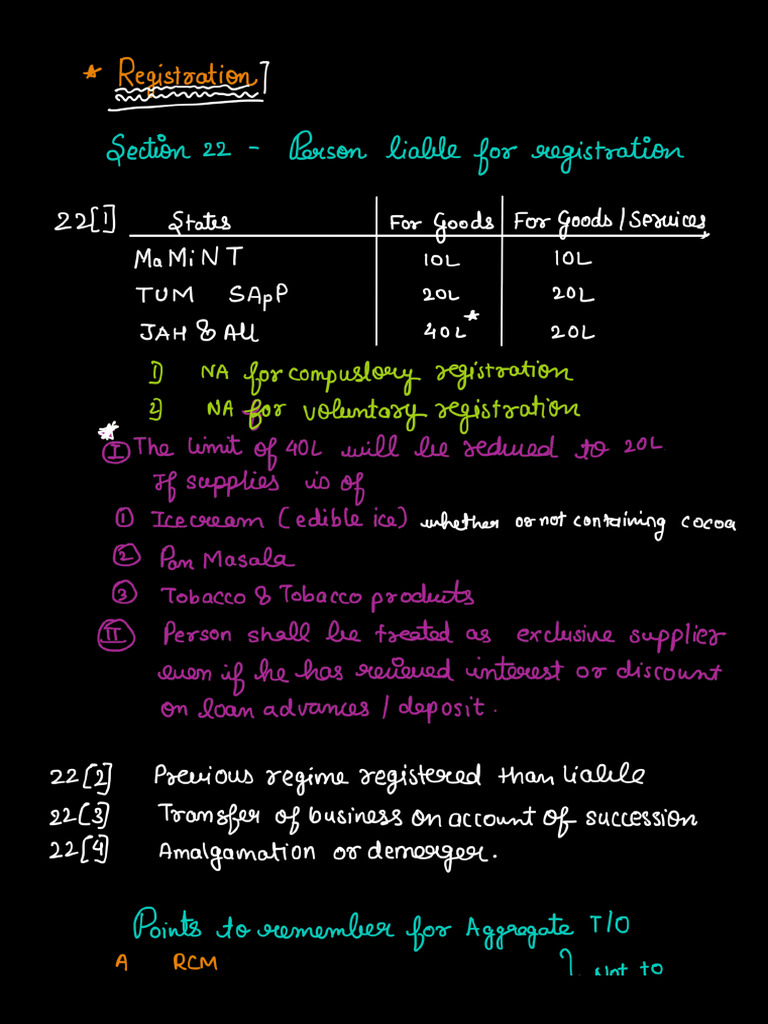 * Registration]
Section 22 - Person liable for registration
22[1] States For Goods For Goods/Services
MaMiNT 10L 10L
TUM SApP 20L 20L
JAH & All 40L* 20L
1) NA for compuslory registration
2) NA for voluntary registration
* I The limit of 40L will be reduced to 20L
If supplies is of
1 Icecream (edible ice) whether or not containing cocoa
2 Pan Masala
3 Tobacco & Tobacco products
II Person shall be treated as exclusive supplier
even if he has recieved interest or discount
on loan advances / deposit.
22[2] Previous regime registered than liable
22[3] Transfer of business on account of succession
22[4] Amalgamation or demerger.
Points to remember for Aggregate T/O
A RCM Not to